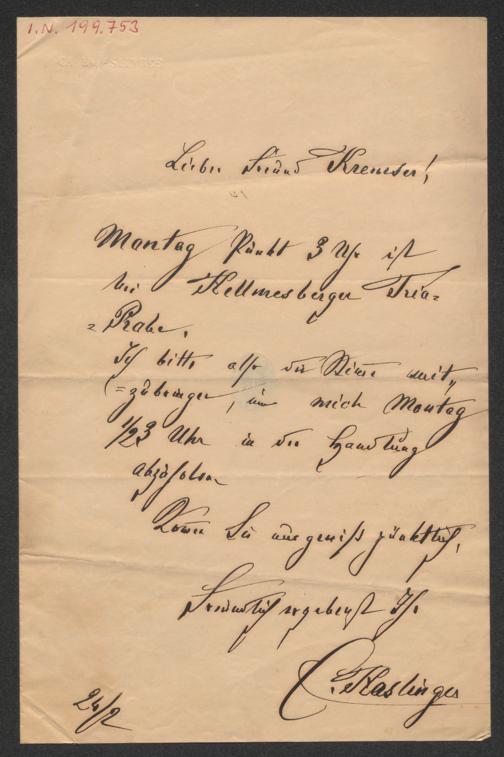 I.N. 199.753
Lieber Freund Kremser!
Montag Punkt 3 Uhr ist
bei Hellmesberger Trio=
=Probe.
Ich bitte also die Stimme mit„
=zubringen, um mich Montag
1/23 Uhr in der Handlung
abzuholen
Kommen Sie nur gewiß pünktlich,
Freundlich ergebenst Ihr
C. Haslinger
24/2